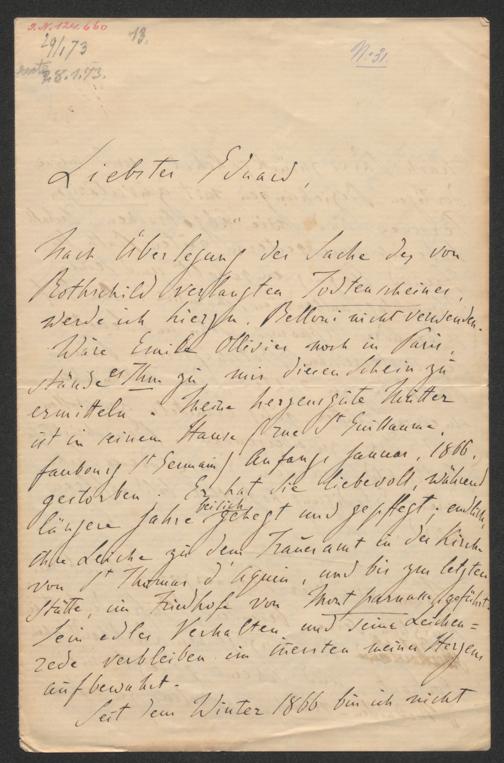 I.N. 124.660
29/1 73
13.
28.1.73.
No 31.
Liebster Eduard,
Nach Überlegung der Sache des von
Rothschild verlangten Todtenscheines,
werde ich hierzu Belloni nicht verwenden.
Wäre Emile Ollivier noch in Paris,
stünde es Ihm zu mir diesen Schein zu
ermitteln. Meine herzensgute Mutter
ist in seinem Hause (rue St Guillaume,
faubourg St Germain) Anfangs Januar, 1866,
gestorben. Er hat sie liebevoll, während
längere Jahre gehegt und gepflegt; endlich,
ihre Leiche zu dem Traueramt in der Kirche
von St Thomas d'Aquin, und bis zur letzten
Stätte, im Friedhofe von Montparnasse geführt.
Sein edles Verhalten und seine Leichen=
rede verbleiben im innersten meines Herzens
aufbewahrt.
Seit dem Winter 1866 bin ich nicht